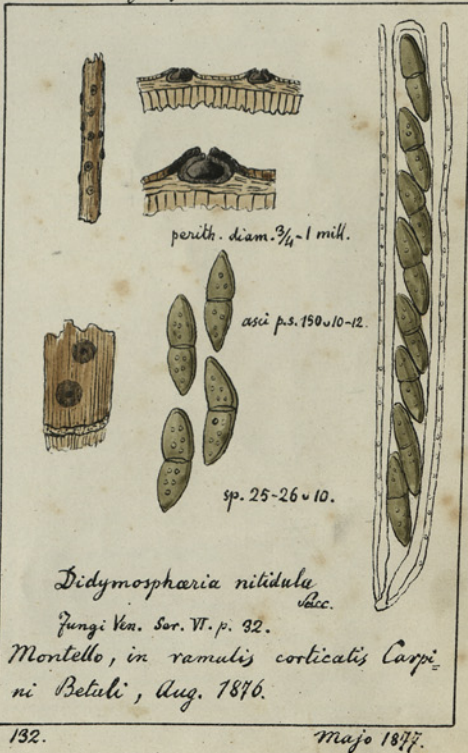 perith. diam. ¾-1 mill.
asci p.s. 150 ᴗ 10-12.
sp. 25-26 ᴗ 10.
Didymosphæria nitidula
Sacc.
Fungi Ven. Ser. VI. p. 32.
Montello, in ramulis corticatis Carpi=
ni Betuli, Aug. 1876.
132. Majo 1877.